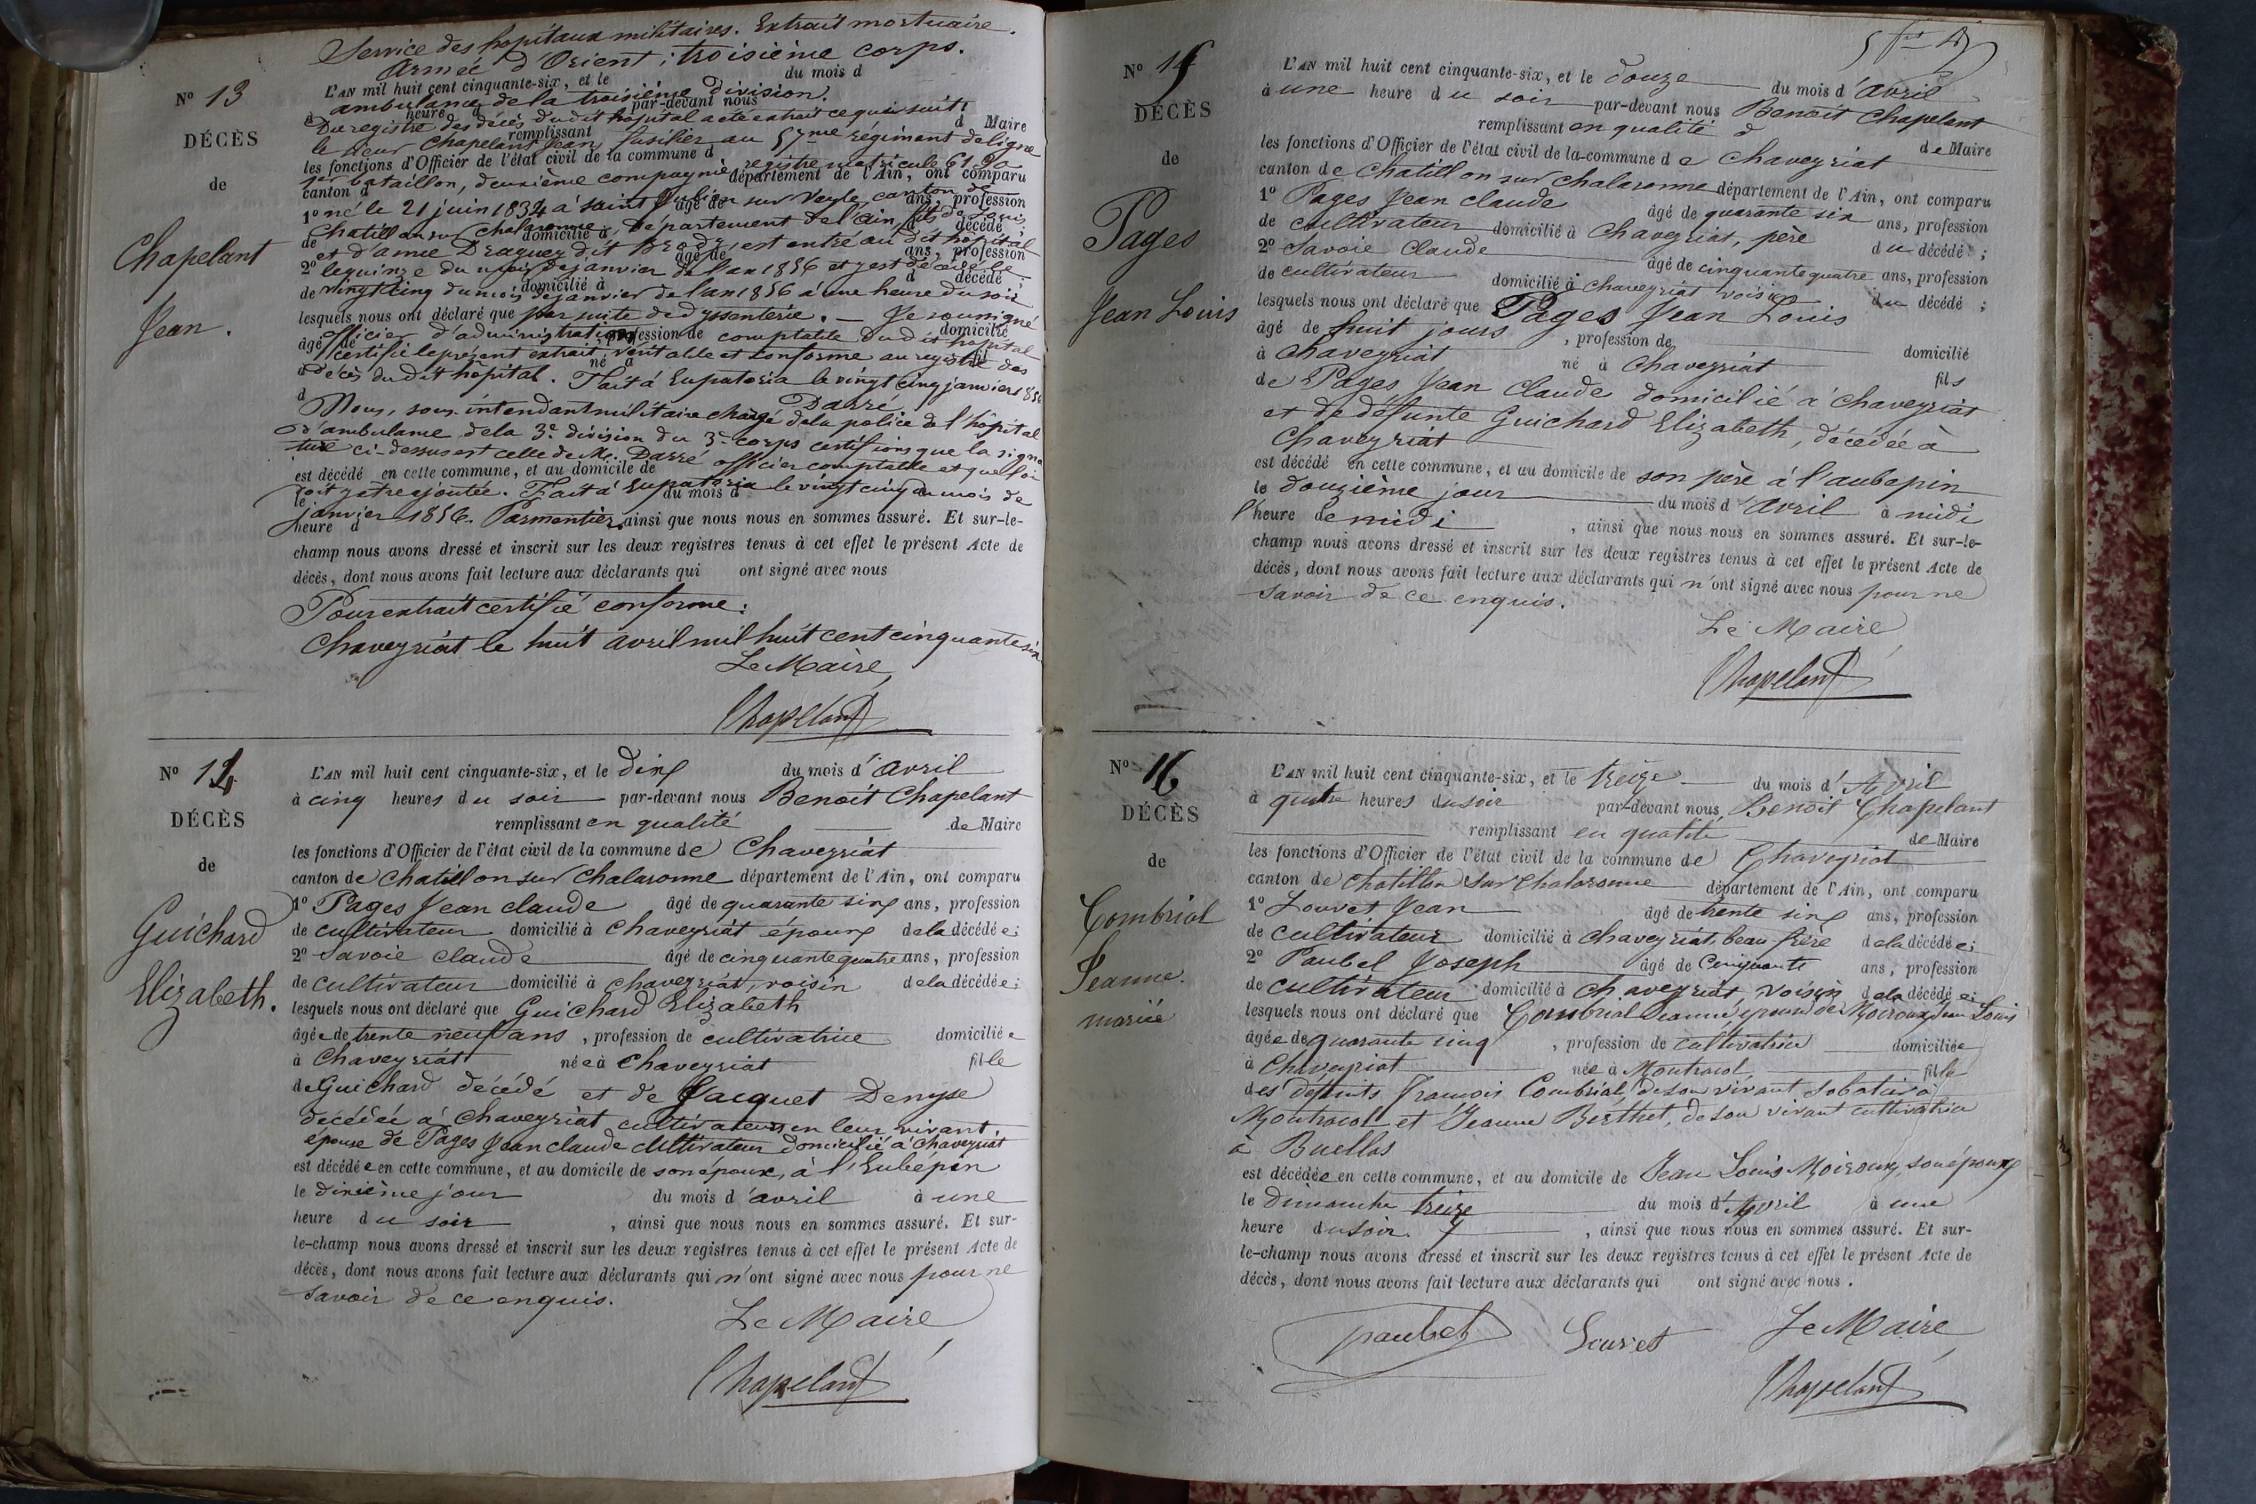 Service des hôpitaux militaires. Extrait mortuaire.
Armée d'Orient; troisième corps.
L'AN mil huit cent cinquante-six, et le du mois d
ambulance de la troisième division.
à heure d par-devant nous
Du registre des décès dudit hôpital a été extrait ce qui suit:
d Maire
remplissant
le sieur Chapelant Jean, fusilier au 57me régiment de ligne
les fonctions d'Officier de l'état civil de la commune d
1er bataillon, deuxième compagnie, registre matricule
canton d département de l'Ain, ont comparu
1º né le 21 juin 1834 à Saint Julien sur Veyle, canton de
âgé de ans, profession
Chatillon sur Chalaronne, département de l'ain, fils de
de domicilié à d décédé ;
et d'anne Draguey dit est entré au dit hôpital
2º âgé de ans, profession
le quinze du mois de janvier de l'an 1856 et y est décédé le
de domicilié à d décédé ;
vingt cinq du mois de janvier de l'an 1856 à une heure du soir
lesquels nous ont déclaré que par suite de dyssenterie. — Je soussigné
officier d'administration comptable dudit hôpital
âgé de , profession de domicilié
certifie le présent extrait, véritable et conforme au registre des
à né à fil
décès dudit hôpital. Fait à Eupatoria le vingt cinq janvier 1856
d Darré
Nous, sous-intendant militaire chargé de la police de l'hôpital
d'ambulance de la 3e division du 3e corps certifions que la signa-
ture ci-dessus est celle de Mr. Darré officier comptable et que foi
est décédé en cette commune, et au domicile de
doit y être ajoutée. Fait à Eupatoria le vingt cinq du mois de
le du mois d
janvier 1856. Parmentier
heure d , ainsi que nous nous en sommes assuré. Et sur-le-
champ nous avons dressé et inscrit sur les deux registres tenus à cet effet le présent Acte de
décès, dont nous avons fait lecture aux déclarants qui ont signé avec nous
Pour extrait certifié conforme:
Chaveyriat le huit avril mil huit cent cinquante six
Le Maire,
Chapelant
Nº 13
DÉCÈS
de
Chapelant
Jean.
Nº 14
DÉCÈS
de
Guichard
Elizabeth.
L'AN mil huit cent cinquante-six, et le dix du mois d'avril
à cinq heures du soir par-devant nous Benoît Chapelant
remplissant en qualité de Maire
les fonctions d'Officier de l'état civil de la commune de Chaveyriat
canton de Chatillon sur Chalaronne département de l'Ain, ont comparu
1º Pages Jean claude âgé de quarante six ans, profession
de cultivateur domicilié à Chaveyriat époux de la décédée;
2º Savoie claude âgé de cinquante quatre ans, profession
de cultivateur domicilié à chaveyriat, voisin de la décédée;
lesquels nous ont déclaré que Guichard Elizabeth
âgée de trente neuf ans , profession de cultivatrice domiciliée
à Chaveyriat née à Chaveyriat fille
de Guichard décédé et de Jacquet Denyse
décédée à Chaveyriat cultivateurs en leur vivant,
épouse de Pages Jean claude cultivateur domicilié à Chaveyriat
est décédée en cette commune, et au domicile de son époux, à l'Eubépin
le dixième jour du mois d'avril à une
heure du soir , ainsi que nous nous en sommes assuré. Et sur-
le-champ nous avons dressé et inscrit sur les deux registres tenus à cet effet le présent Acte de
décès, dont nous avons fait lecture aux déclarants qui n'ont signé avec nous pour ne
savoir de ce enquis.
Le Maire
Chapelant
Nº 15
DÉCÈS
de
Pages
Jean Louis
L'AN mil huit cent cinquante-six, et le douze du mois d'avril
à une heure du soir par-devant nous Benoît Chapelant
remplissant en qualité d de Maire
les fonctions d'Officier de l'état civil de la commune de Chaveyriat
canton de Chatillon sur Chalaronne département de l'Ain, ont comparu
1º Pages Jean claude âgé de quarante six ans, profession
de cultivateur domicilié à Chaveyriat, père du décédé ;
2º Savoie Claude âgé de cinquante quatre ans, profession
de cultivateur domicilié à Chaveyriat voisin du décédé ;
lesquels nous ont déclaré que Pages Jean Louis
âgé de huit jours , profession de domicilié
à Chaveyriat né à Chaveyriat fils
de Pages Jean Claude domicilié à Chaveyriat
et de défunte Guichard Elizabeth, décédée à
Chaveyriat
est décédé en cette commune, et au domicile de son père à l'aubepin
le douzième jour du mois d'avril à midi
l'heure de midi , ainsi que nous nous en sommes assuré. Et sur-le-
champ nous avons dressé et inscrit sur les deux registres tenus à cet effet le présent Acte de
décès, dont nous avons fait lecture aux déclarants qui n'ont signé avec nous pour ne
savoir de ce enquis.
Le Maire
Chapelant
Nº 16
DÉCÈS
de
Combrial
Jeanne.
mariée
L'AN mil huit cent cinquante-six, et le treize du mois d'Avril
à quatre heures du soir par-devant nous Benoit Chapelant
remplissant en qualité de Maire
les fonctions d'Officier de l'état civil de la commune de Chaveyriat
canton de Chatillon sur Chalaronne département de l'Ain, ont comparu
1º Louvet Jean âgé de trente six ans, profession
de cultivateur domicilié à Chaveyriat, beau-frère de la décédée;
2º Paubel Joseph âgé de Cinquante ans, profession
de cultivateur domicilié à Chaveyriat, voisin de la décédée;
lesquels nous ont déclaré que Combrial Jeanne, épouse de Moiroux Jean Louis
âgée de quarante cinq , profession de cultivatrice domiciliée
à Chaveyriat née à Montracol fille
des défunts François Combrial, de son vivant sabotier à
Montracol et Jeanne Berthet, de son vivant cultivatrice
à Buellas
est décédée en cette commune, et au domicile de Jean Louis Moiroux, son époux
le dimanche treize du mois d'Avril à une
heure du soir , ainsi que nous nous en sommes assuré. Et sur-
le-champ nous avons dressé et inscrit sur les deux registres tenus à cet effet le présent Acte de
décès, dont nous avons fait lecture aux déclarants qui ont signé avec nous.
paubel Louvet Le Maire,
Chapelant